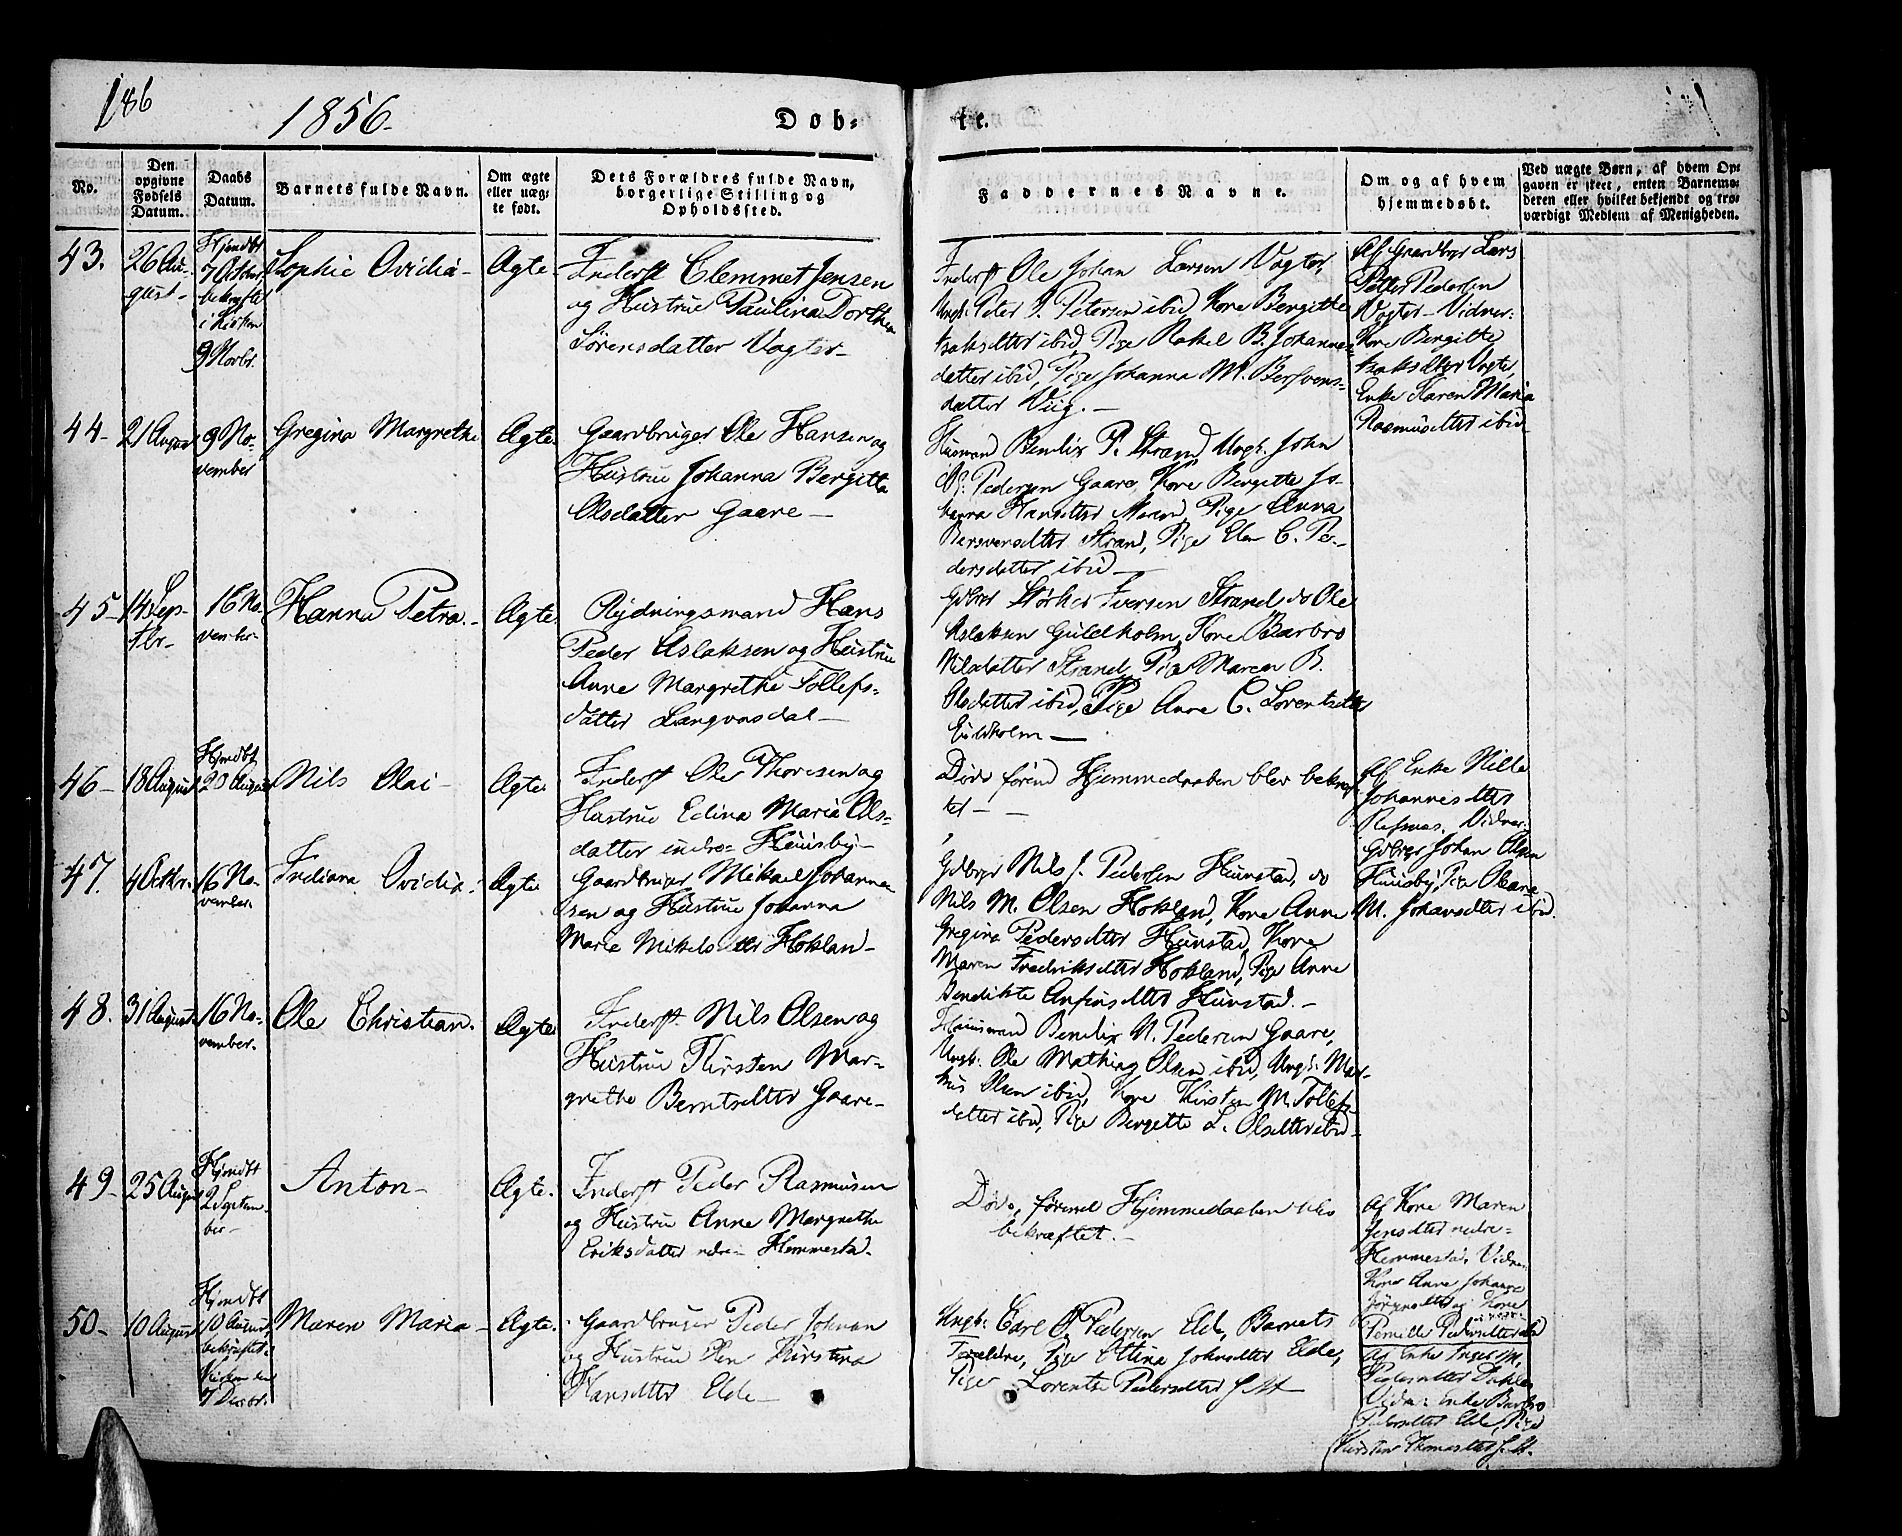 186
1856.
Døb-
te.
No.
Den
opgivne
Fødsels
Datum.
Daabs
Datum.
Barnets fulde Navn.
Om ægte
eller uæg-
te født.
Dets Forældres fulde Navn,
borgerlige Stilling og
Opholdssted.
Faddernes Navne.
Om og af hvem
hjemmedøbt.
Ved uægte Børn, af hvem Op-
gaven er skeet, enten Barnemo-
deren eller hvilket bekjendt og tro-
værdigt Medlem af Menigheden.
43.
26 Au-
gust-
Hjemdbt
7 Octbr.
i Kirken
9 Novbr.
Sophie Ovidia-
Ægte-
Inderst Clemmet Jensen
og Hustrue Paulina Dorthea
Sørensdatter Vogter-
Inderst Ole Johan Larsen Vogter,
Ungk. Peter J. Petersen ibid, Kone Bergitte
Isaksdtter ibid, Pige Rakel B. Johannes-
datter ibid, Pige Johanna M. Bersvens-
datter Viig.-
Af Gaardbrgr Lars
Petter Pedersen
Vogter- Vidner:
Kone Bergitte
Isaksdtter Vogter,
Enke Karen Maria
Rasmusdtter ibid-
44-
21 August
9 No-
vember
Gregina Margrethe
Ægte.
Gaardbruger Ole Hansen og
Hustrue Johanna Bergitta
Olsdatter Gaare-
Husmand Bendix P. Strand, Ungk. John
Pedersen Gaare, Kone Bergitte Jo-
hanna Hansdtter Pige Anna
Bersvensdtter Strand, Pige Elen C. Pe-
dersdatter ibid-
45-
14 Sep-
tbr-
16 No-
vember-
Hanna Petra.-
Ægte.
Rydningsmand Hans
Peder Aslaksen og Hustrue
Anne Margrethe Tollefs-
datter Langvasdal-
Gdbrgr Størker Iversen Strand, do Ole
Aslaksen Guldholm, Kone Barbro
Nilsdatter Strand, Pige Maren B.
Olsdatter ibid, Pige Anne C. Lorentsdtter
Guldholm-
46-
18 August
Hjemdbt
20 August
Nils Olai-
Ægte.
Inderst Ole Thoresen og
Hustrue Edina Maria Ols-
datter indre- Huusby-
Døde førend Hjemmedaaben blev bekræf-
tet-
Af Enke Nille
Johannesdtter
Refsnæs. Vidner:
Gdbrgr Johan Olsen
Huusby, Pige Oleana
M. Johansdtter ibid.
47.
4 Octbr.
16 No-
vember.
Indiana Ovidia.
Ægte
Gaardbruger Mikael Johanne-
sen og Hustrue Johanna
Marie Mikelsdtter Hokland-
Gdbrgr Nils J. Pedersen Huunstad, do
Nils M. Olsen Hokland, Kone Anne
Gregina Pedersdtter Huunstad, Kone
Maren Fredriksdtter Hokland, Pige Anne
Bendikte Anfinsdtter Huunstad.-
48.
31 August.
16 No-
vember.
Ole Christian.
Ægte
Inderst Nils Olsen og
Hustrue Kirsten Mar-
grethe Berntsdtter Gaare-
Huusmand Bendix N. Pedersen Gaare,
Ungk. Ole Mathias Olsen ibid, Ungk. Mar-
kus Olsen ibid, Kone Kirsten M. Tollefs-
datter ibid, Pige Bergitte L. Olsdtter ibid-
49-
25 August
Hjemdbt
2 Septem-
ber-
Anton-
Ægte.
Inderst Peder Rasmusen
og Hustrue Anne Margrethe
Eriksdatter nedre- Hemmestad.
Døde, førend Hjemmedaaben blev
bekræftet.-
Af Kone Maren
Jensdtter nedre-
Hemmestad. Vidner
Kone Anne Johanna
Jørgensdtter og Kone
Pernille Pedersdtter ibid
50-
10 August
Hjemdbt
10 August,
bekræftet i
Kirken den
7 Decbr.
Maren Maria-
Ægte.
Gaardbruger Peder Johnsen
og Hustrue Elen Kirstina
Hansdtter Elde-
Ungk. Carl O. Pedersen Elde, Barnets
Forældre, Pige Ottina Johnsdtter Elde,
Pige Lorentse Pedersdtter
Af Enke Inger M.
Pedersdtter Dahle
Vidn: Enke Barbro
Pedersdtter Elde, Pige
Kirsten Thomasdtter